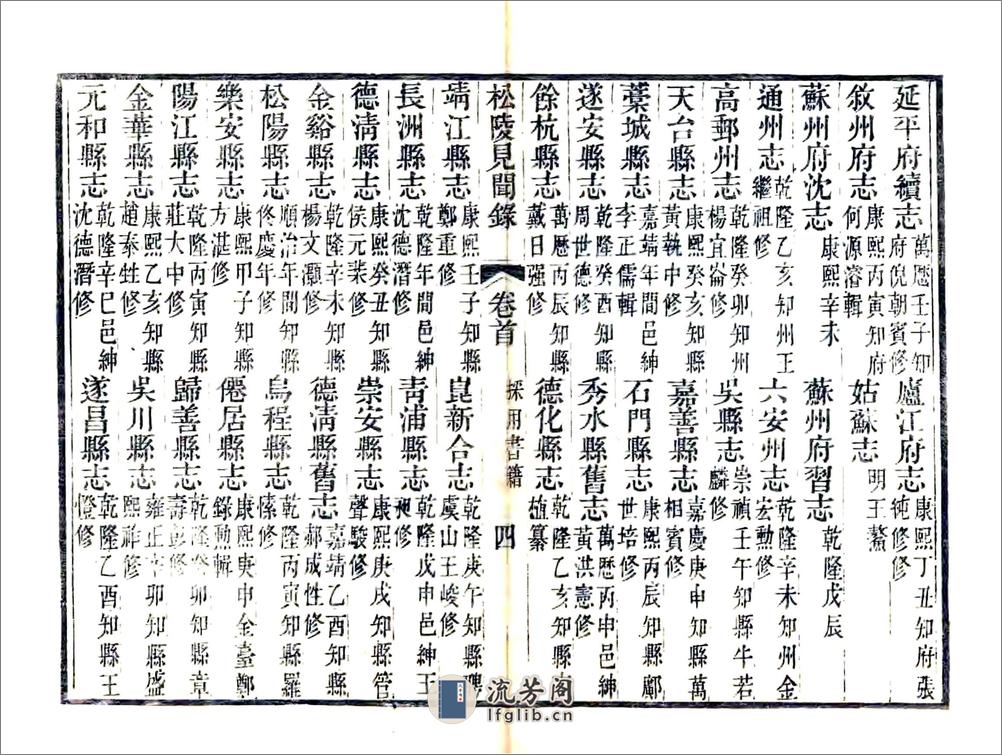 延平府續志 萬歷壬子知府倪朝賓修 廬江府志 康熙丁丑知府張純修修
敘州府志 康熙丙寅知府何源濬輯 姑蘇志 明王鏊
蘇州府沈志 康熙辛未 蘇州府習志 乾隆戊辰
通州志 乾隆乙亥知州王繼祖修 六安州志 乾隆辛未知州金宏勳修
高郵州志 乾隆癸卯知州楊宜崙修 吳縣志 崇禎壬午知縣牛若麟修
天台縣志 康熙癸亥知縣黃執中修 嘉善縣志 嘉慶庚申知縣萬相賓修
藁城縣志 嘉靖年間邑紳李正儒輯 石門縣志 康熙丙辰知縣鄺世培修
遂安縣志 乾隆癸酉知縣周世德修 秀水縣舊志 萬歷丙申邑紳黃洪憲修
餘杭縣志 萬歷丙辰知縣戴日强修 德化縣志 乾隆乙亥知縣 植纂
松陵見聞錄 卷首 採用書籍 四
靖江縣志 康熙壬子知縣鄭重修 崑新合志 乾隆庚午知縣 虞山王峻修
長洲縣志 乾隆年間邑紳沈德潛修 青浦縣志 乾隆戊申邑紳王昶修
德清縣志 康熙癸丑知縣侯元棐修 崇安縣志 康熙庚戌知縣管聲駿修
金谿縣志 乾隆辛未知縣楊文灝修 德清縣舊志 嘉靖乙酉知縣郝成性修
松陽縣志 順治年間知縣佟慶年修 烏程縣志 乾隆丙寅知縣羅愫修
樂安縣志 康熙甲子知縣方湛修 僊居縣志 康熙庚申金臺鄭錄勳輯
陽江縣志 乾隆丙寅知縣莊大中修 歸善縣志 乾隆癸卯知縣章壽彭修
金華縣志 康熙乙亥知縣趙泰甡修 吳川縣志 雍正辛卯知縣盛熙祚修
元和縣志 乾隆辛巳邑紳沈德潛修 遂昌縣志 乾隆乙酉知縣王憕修